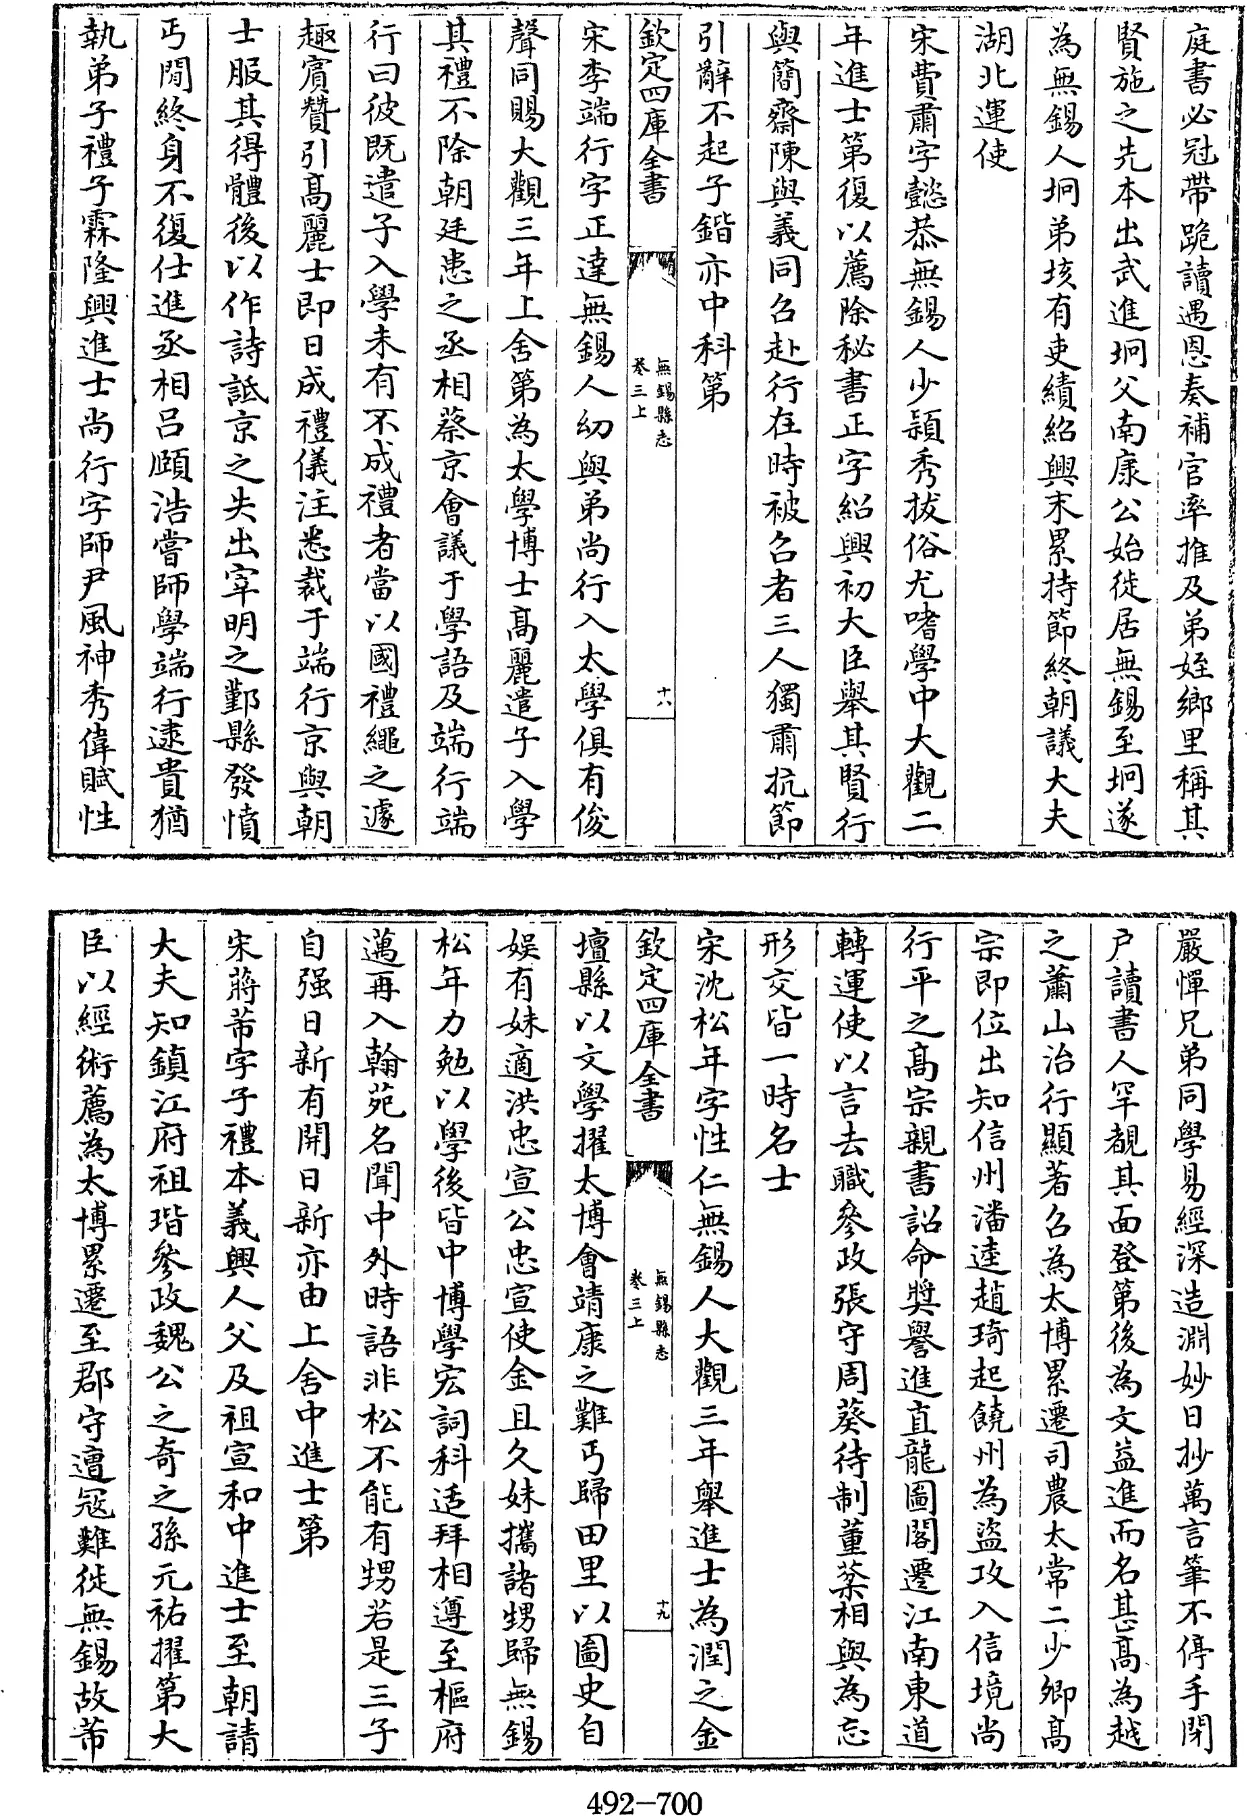 庭書必冠帶跪讀遇恩奏補官率推及弟姪鄉里稱其
賢施之先本出武進坰父南康公始徙居無錫至坰遂
為無錫人坰弟垓有吏績紹興末累持節終朝議大夫
湖北運使
宋費肅字懿恭無錫人少穎秀拔俗尤嗜學中大觀二
年進士第復以薦除秘書正字紹興初大臣舉其賢行
與簡齋陳與義同召赴行在時被召者三人獨肅抗節
引辭不起子鍇亦中科第
欽定四庫全書
無錫縣志
卷三上
十八
宋李端行字正達無錫人幼與弟尚行入太學俱有俊
聲同賜大觀三年上舍第為太學博士高麗遣子入學
其禮不除朝廷患之丞相蔡京會議于學語及端行端
行曰彼既遣子入學未有不成禮者當以國禮繩之遽
趣賔贊引高麗士即日成禮儀注悉裁于端行京與朝
士服其得體後以作詩詆京之失出宰明之鄞縣發憤
丐閒終身不復仕進丞相呂頤浩嘗師學端行逮貴猶
執弟子禮子霖隆興進士尚行字師尹風神秀偉賦性
嚴憚兄弟同學易經深造淵妙日抄萬言筆不停手閉
户讀書人罕覩其面登第後為文益進而名甚高為越
之蕭山治行顯著召為太博累遷司農太常二少卿高
宗即位出知信州潘逵趙琦起饒州為盜攻入信境尚
行平之高宗親書詔命奬譽進直龍圖閣遷江南東道
轉運使以言去職參政張守周葵待制董棻相與為忘
形交皆一時名士
宋沈松年字性仁無錫人大觀三年舉進士為潤之金
欽定四庫全書
無錫縣志
卷三上
十九
壇縣以文學擢太博會靖康之難丐歸田里以圖史自
娱有妹適洪忠宣公忠宣使金且久妹攜諸甥歸無錫
松年力勉以學後皆中博學宏詞科适拜相遵至樞府
邁再入翰苑名聞中外時語非松不能有甥若是三子
自强日新有開日新亦由上舍中進士第
宋蔣芾字子禮本義興人父及祖宣和中進士至朝請
大夫知鎮江府祖瑎參政魏公之奇之孫元祐擢第大
臣以經術薦為太博累遷至郡守遭冦難徙無錫故芾
492-700